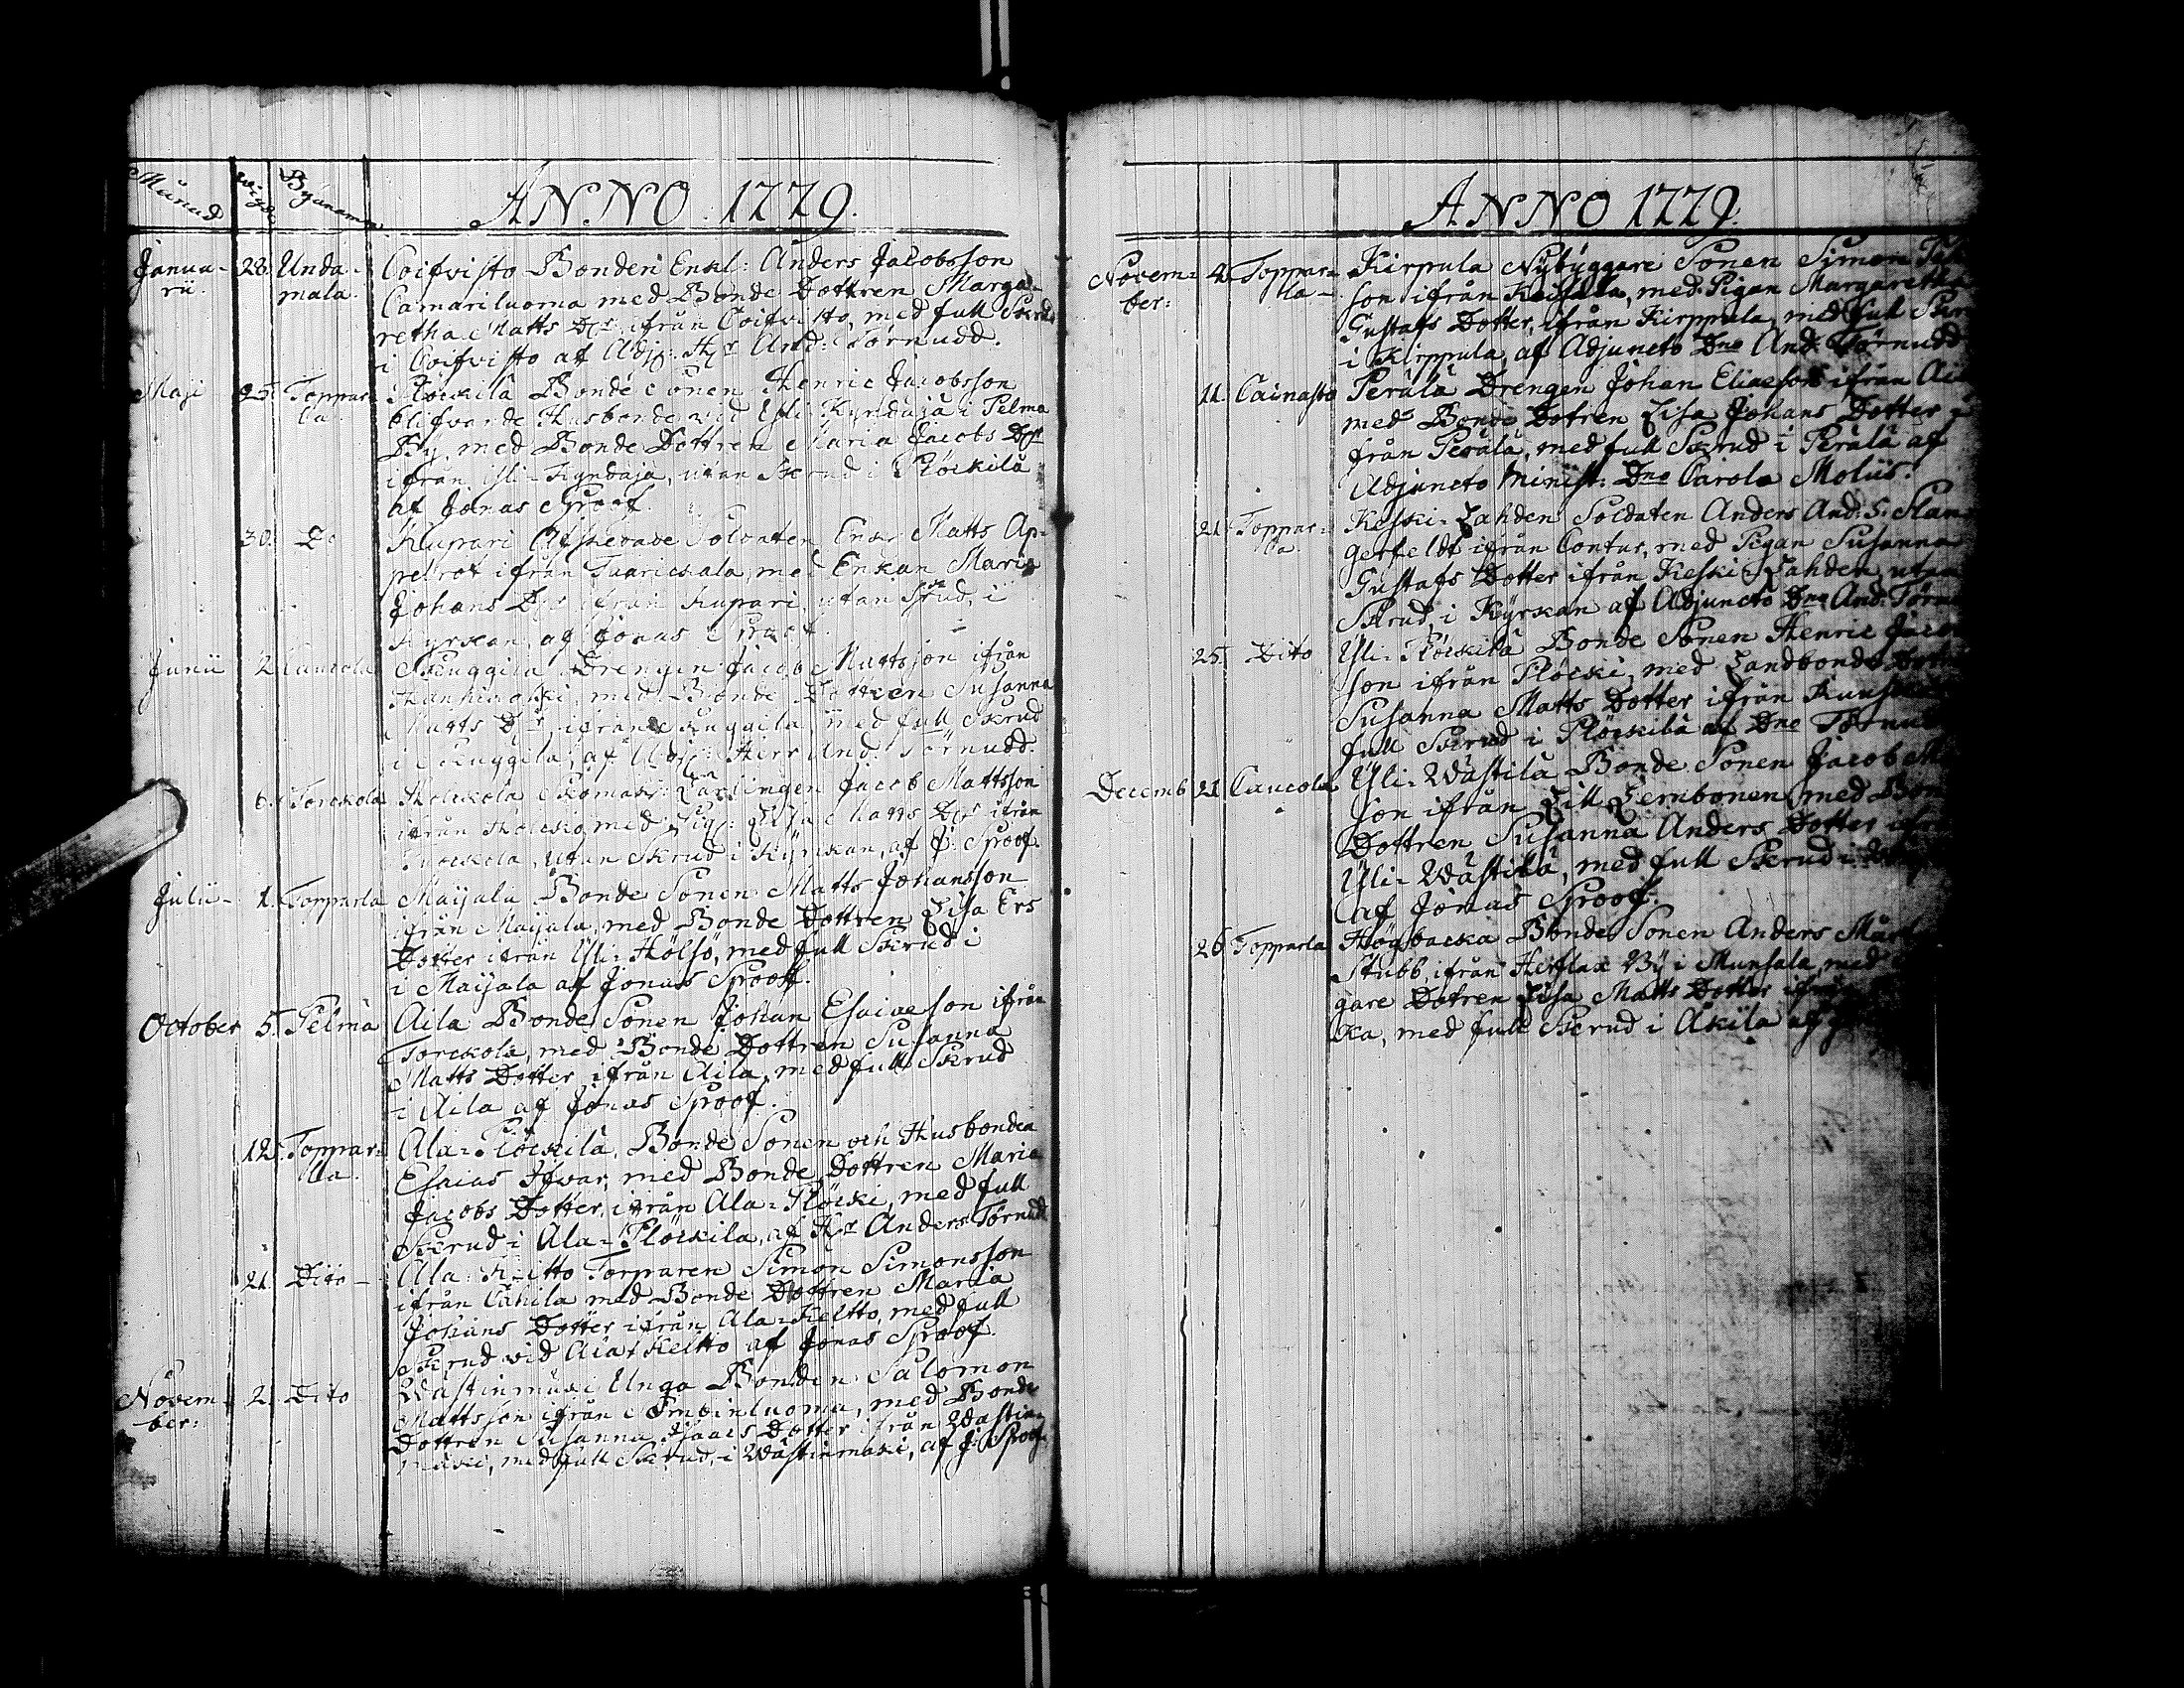 Månad wigde Bÿanamn
ANNO 1779.
Janua- 28. Unda- Coifvisto Bonden Enkl: Anders Jacobsson
rii. mala. Camariluoma med Bonde Dottren Marga-
retha Matts Dr. ifrån Coifvisto, med full Skrud
i Coifvisto af Adj: Hr And: Törnudd.
Maji 25. Toppar- Plöckilä Bonde Sonen Henric Jacobsson
la. blifvande Husbonde vid Yli Kyndäjä i Pelma
By, med Bonde Dottren Maria Jacobs Dr
ifrån Yli-Kyndäjä, utan Skrud i Plöckilä
af Jonas Sproof.
30. Do Kupari Afskedade Soldaten Enkl Matts Ap-
pelrot ifrån Tuarickala, med Enkan Maria
Johans Dr ifrån Kupari, utan Skrud, i
Kyrkan af Jonas Sproof.
Junii 2 Caucola Skuggila Drengen Jacob Mattsson ifrån
Hanhikoski, med Bonde Dottren Susanna
Matts Dr. ifrån Skuggila, med full Skrud
i Skuggila, af Adj: Herr And: Törnudd.
6. Torckola Holckola Skomak: Lärlingen Jacob Mattsson
ifrån Holcko, med Pig: Lisa Matts Dr ifrån
Torckola, utan Skrud i Kÿrckan, af J: Sproof.
Julii- 1. Topparla Maijala Bonde Sonen Matts Johansson
ifrån Maijala, med Bonde Dottren Lisa Ers
Dotter ifrån Yli-Hölsö, med full Skrud i
i Maijala af Jonas Sproof.
October 5. Pelmä Aila Bonde Sonen Johan Esaiæson ifrån
Torckola, med Bonde Dottren Susanna
Matts Dotter ifrån Aila, med full Skrud
i Aila af Jonas Sproof.
12. Toppar- Ala-Plöckilä, Bonde Sonen och Husbonden
la. Esaias Ifvar, med Bonde Dottren Maria
Jacobs Dotter, ifrån Ala-Plöcki, med full
Skrud i Ala-Plöckila, af Hr Anders Törnudd
21. Dito- Ala-Keltto Torparen Simon Simonsson
ifrån Cahila med Bonde Dottren Maria
Johans Dotter ifrån Ala-Keltto, med full
Skrud vid Ala-Keltto af Jonas Sproof.
Novem- 2. Dito Wästinmäki Unga Bonden Salomon
ber: Mattsson ifrån, med Bonde
Dottren Susanna Isaacs Dotter ifrån Wästin-
mäki, med full Skrud, i Wästinmäki, af J: Sproof.
ANNO 1779.
Novem- 4. Toppar- Kirpula Nÿbÿggare Sonen Simon
ber: la- son ifrån, med Pigan Margaretha
Gustafs Dotter, ifrån Kirppula, med full
i Kirppula, af Adjuncto Dno And Törnudd
11. Cainasto Perälä Drengen Johan Eliæson ifrån
med Bonde Dotren Lisa Johans Dotter
från Perälä, med full Skrud i Perälä af
Adjuncto Minist: Dno Carolo Moliis.
21. Toppar- Keski-Lahden Soldaten Anders And: S.
la. gerfeldt ifrån Contus, med Pigan Susanna
Gustafs Dotter ifrån Keski-Lahden, utan
Skrud, i Kÿrkan af Adjuncto Dno And:
25. Dito Yli-Plöckilä Bonde Sonen Henric
son ifrån Plöcki, med Landbonde
Susanna Matts Dotter ifrån
full Skrud i Plöckilä af Dno
Decemb 21 Caucola Yli-Wästilä Bonde Sonen Jacob
son ifrån Lill Lernbonen, med
Dottren Susanna Anders Dotter
Yli-Wästilä, med full Skrud i
af Jonas Sproof.
26 Topparla Högbacka Bonde Sonen Anders
Stubb, ifrån Herflax Bÿ i Munsala, med
gare Dotren Lisa Matts Dotter ifrån
ka, med full Skrud i Akila af